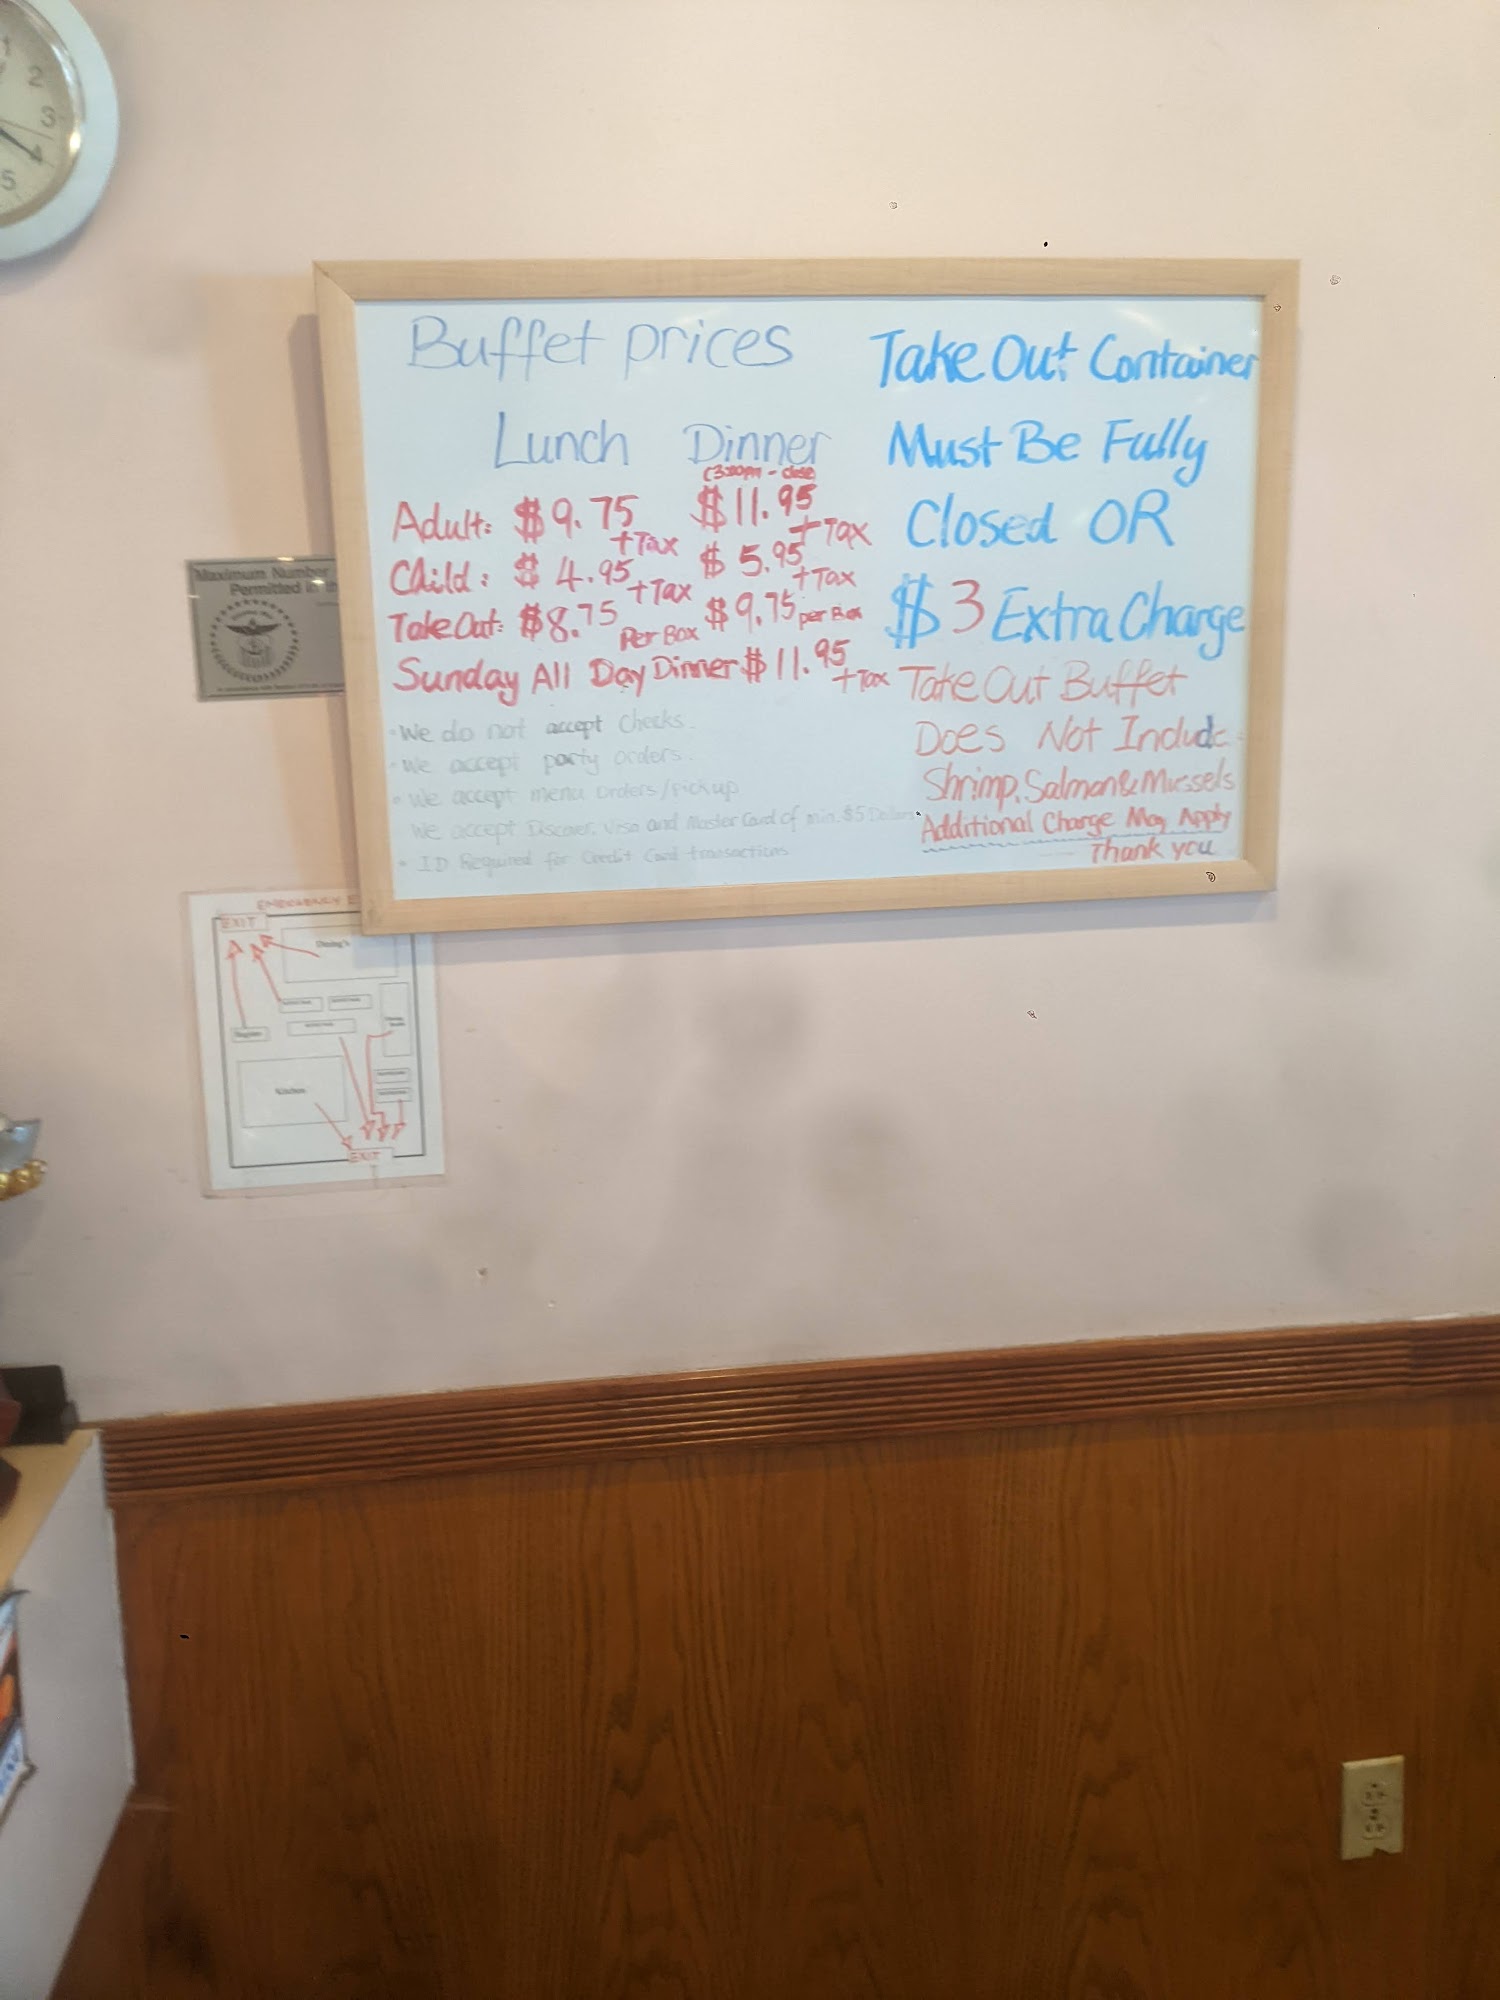 1
2
3
4
5
Buffet prices
Lunch Dinner
(3:30pm - close)
Adult: $9.75 +Tax $11.95 +Tax
Child: $4.95 +Tax $5.95 +Tax
Take Out: $8.75 Per Box $9.75 per Box
Sunday All Day Dinner $11.95 +Tax
• We do not accept checks.
• We accept party orders.
• We accept menu orders/pickup
We accept Discover, Visa and Master Card of min. $5 Dollars
• ID Required for Credit Card transactions
Take Out Container
Must Be Fully
Closed OR
$3 Extra Charge
Take Out Buffet
Does Not Include
Shrimp, Salmon & Mussels
Additional Charge May Apply
Thank you
Maximum Number
Permitted in th
EMERGENCY E
EXIT
Dining
Register
Kitchen
EXIT